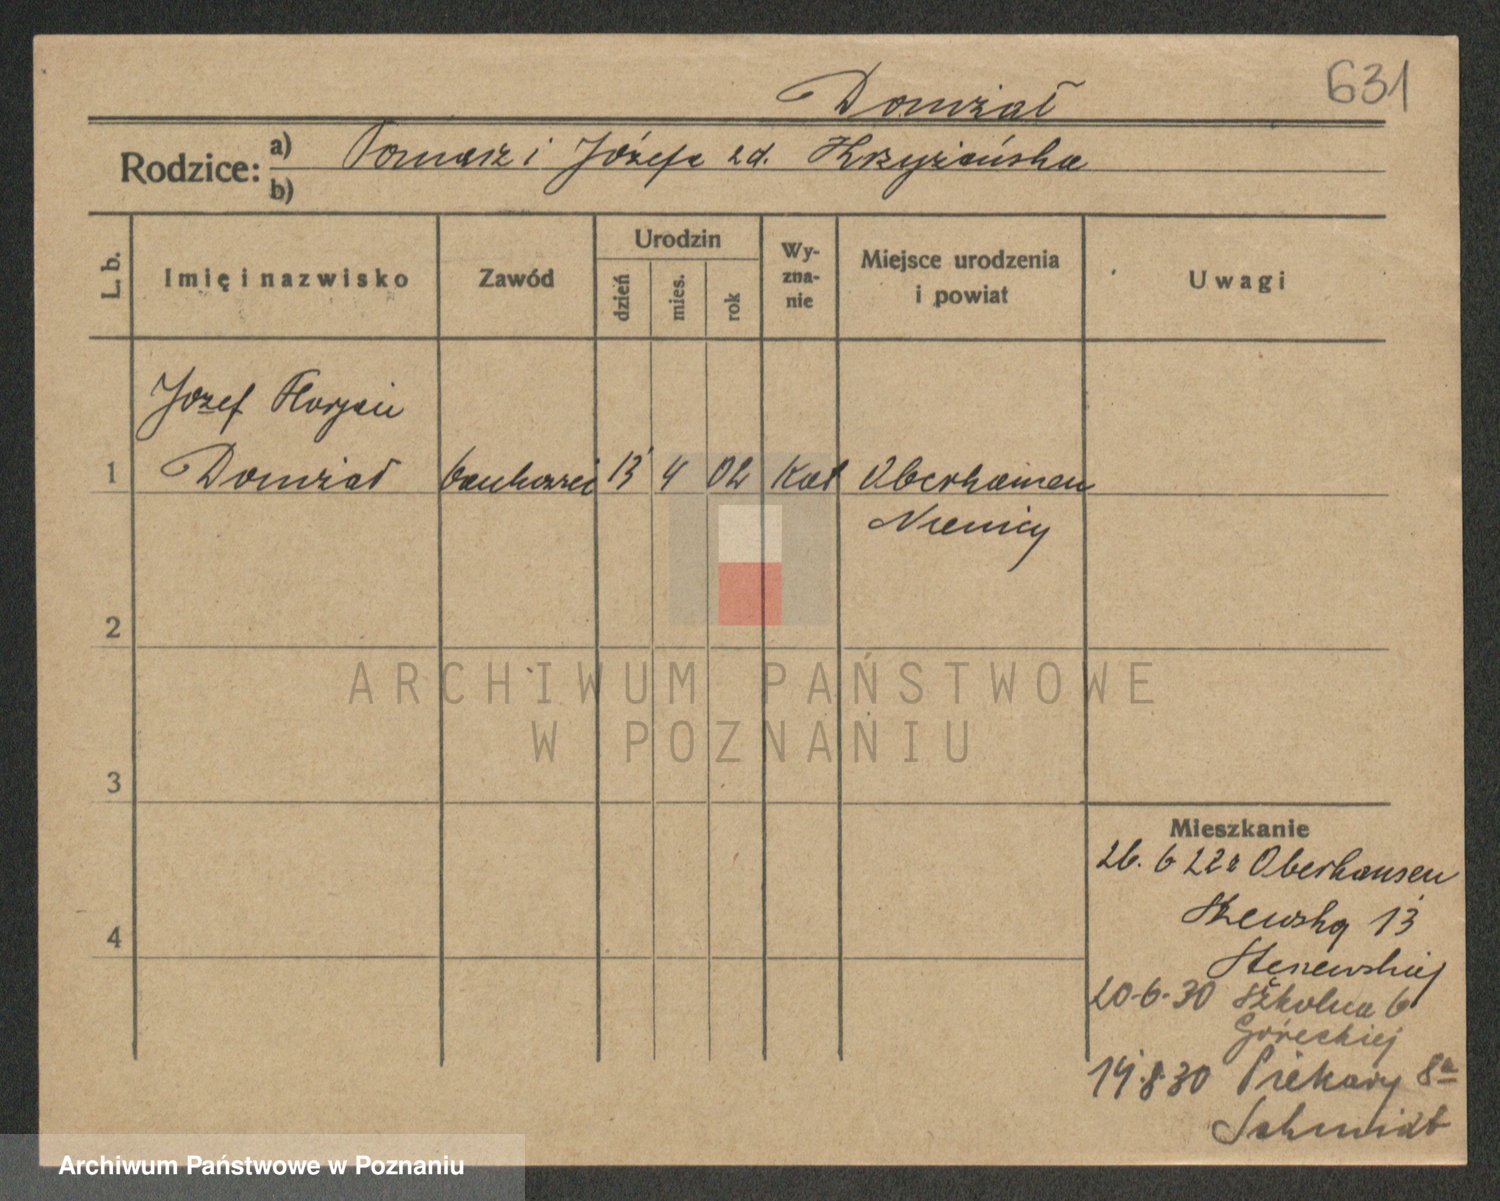 631
Domżał
Rodzice: a) Tomasz i Józefa zd. Krzyżańska
b)
L. b. Imię i nazwisko Zawód Urodzin dzień mies. rok Wy-zna-nie Miejsce urodzenia i powiat Uwagi
Józef Florjan
1 Domżał 13 4 02 Kat Oberhausen
Niemcy
2
ARCHIWUM PAŃSTWOWE
W POZNANIU
3
Mieszkanie
26. 6 22 z Oberhausen
4 13
20.6.30 Szkolna 6
Góreckiej
14.8.30 Piekary 8a
Schmidt
Archiwum Państwowe w Poznaniu